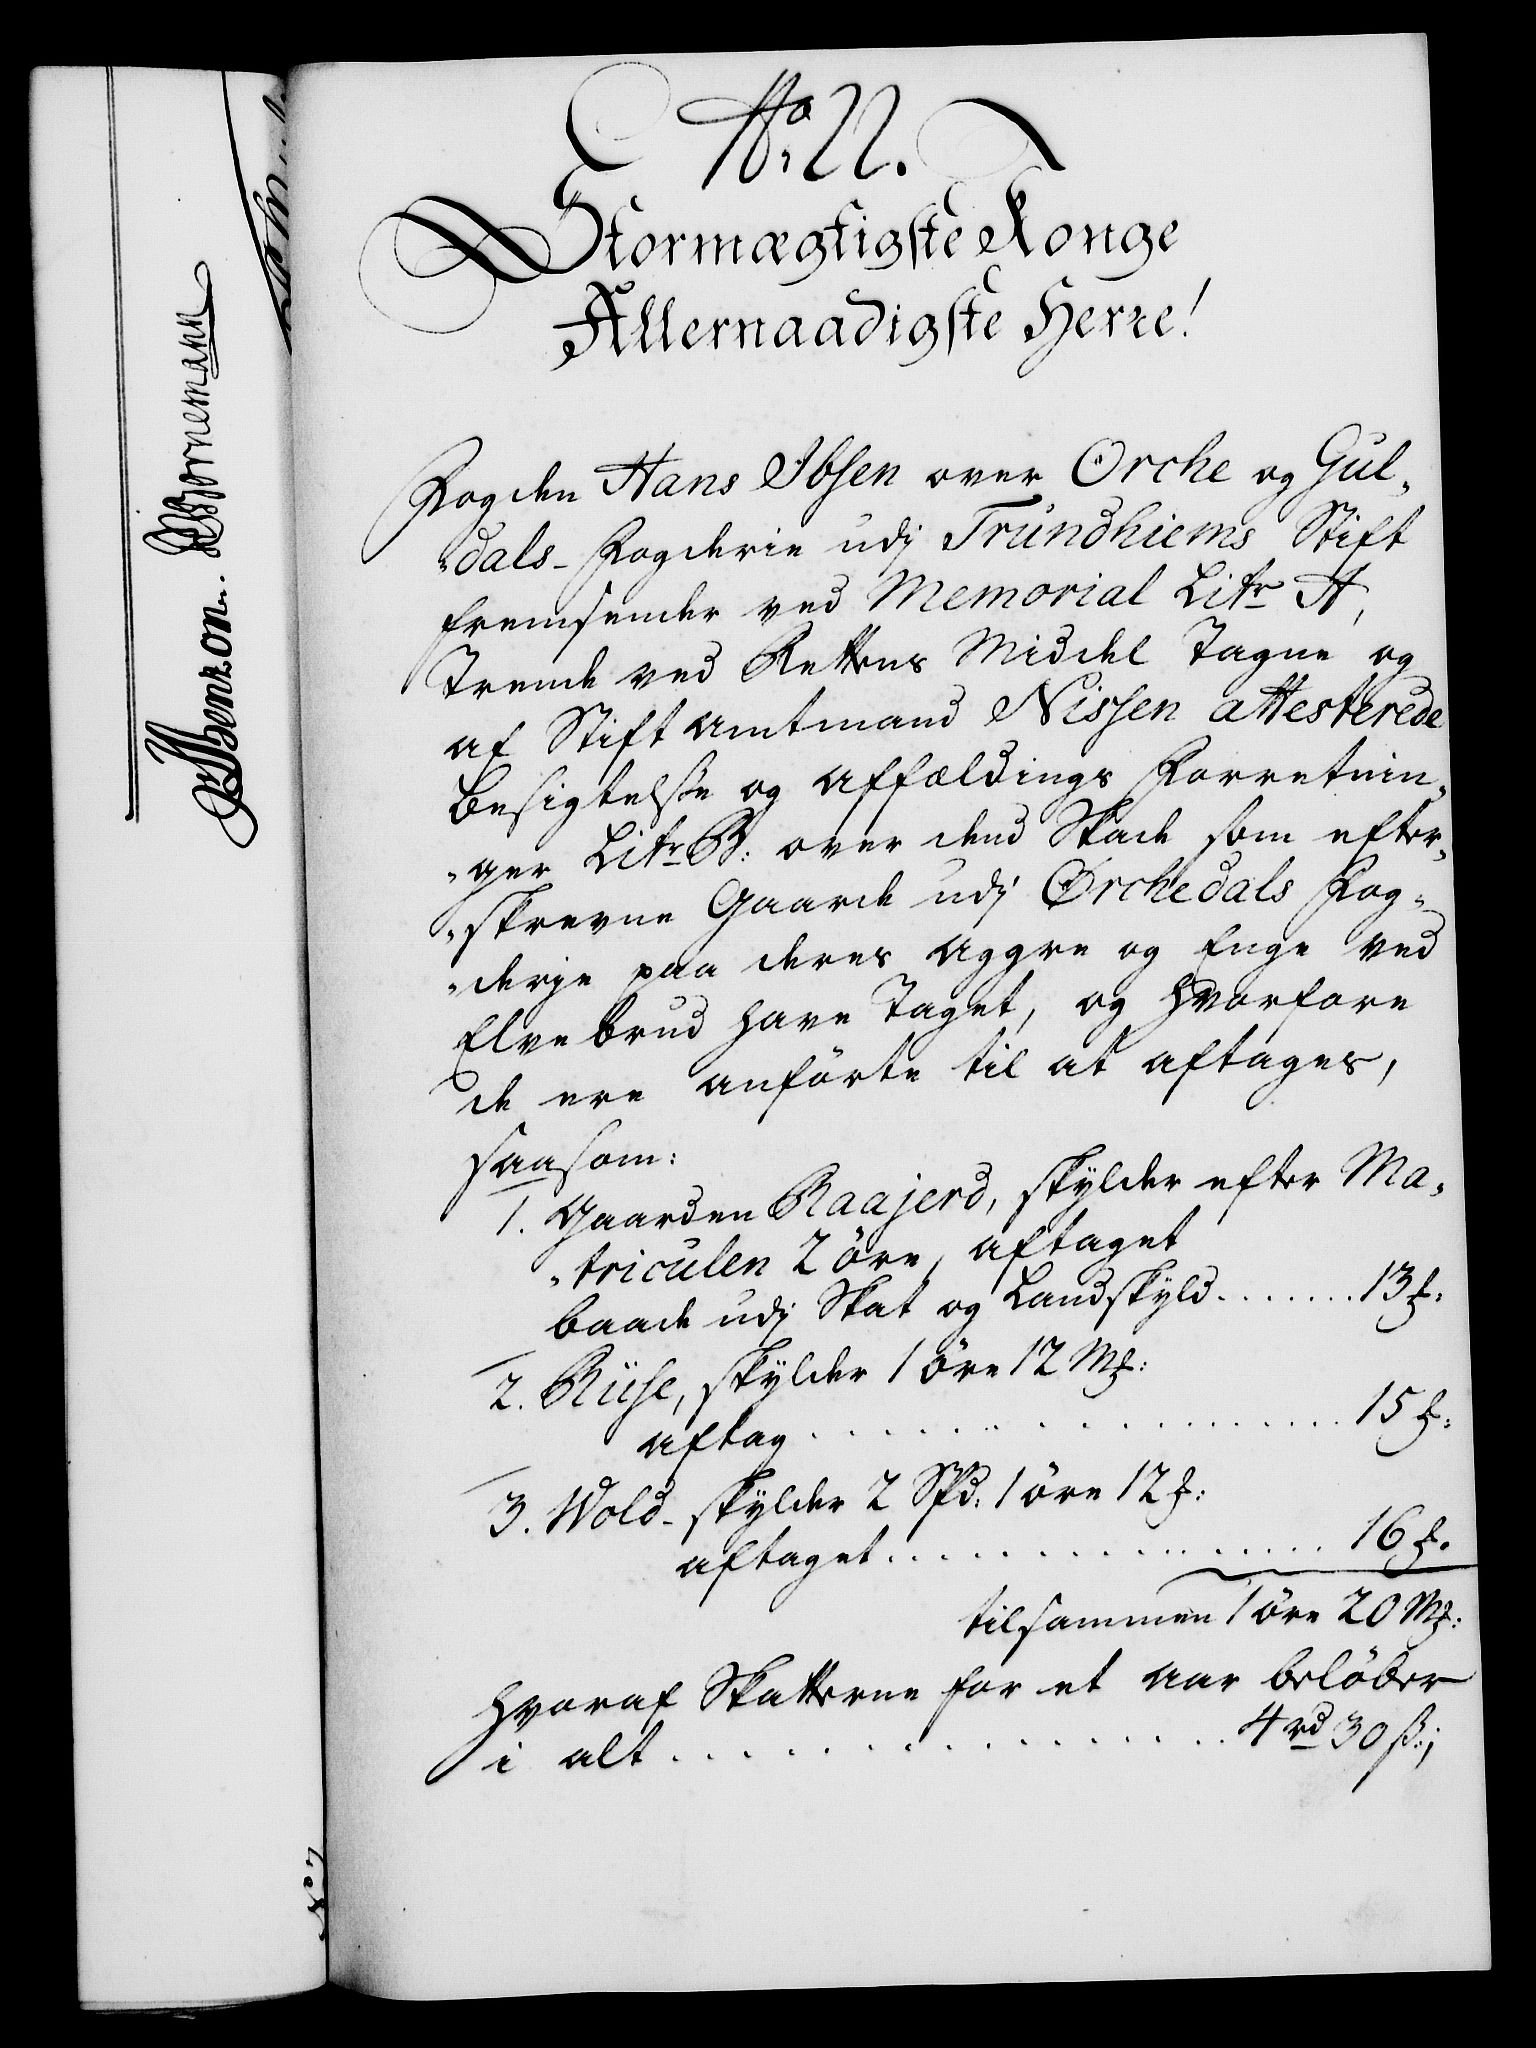 No: 22.
Stormægtigste Konge
Allernaadigste Herre!
Fogden Hans Ibsen over Orche og Gul„
„dals- Fogderie udj Trundhiems Stift
fremsender ved Memorial Litr A,
Trende ved Rettens Middel tagne, og
af Stift Amtmand Nissen attesterede
Besigtelse og Affældings Forretnin„
„ger Litr B: over dend Skade som efter„
„skrevne Gaarde udj Ørchedals Fog„
„derje paa deres Aggre og Enge ved
Elvebrud have Taget, og hvorfore
de ere anförte til at aftages,
saasom:
1. Gaarden Raajerd, skylder efter Ma„
„triculen 2 öre, aftaget
baade udj Skat og Landskyld ....... 13 ȝ.
2. Rüse, skylder 1 öre 12 Mȝ:
aftag .................... 15 ȝ:
3. Wold- skylder 2 Spd: 1 öre 12 ȝ:
aftaget ................. 16 ȝ.
tilsammen 1 öre 20 Mȝ:
hvoraf Skatterne for et Aar belöber
i alt .................. 4 rd 30 ß:;
Benzon. Bornemann